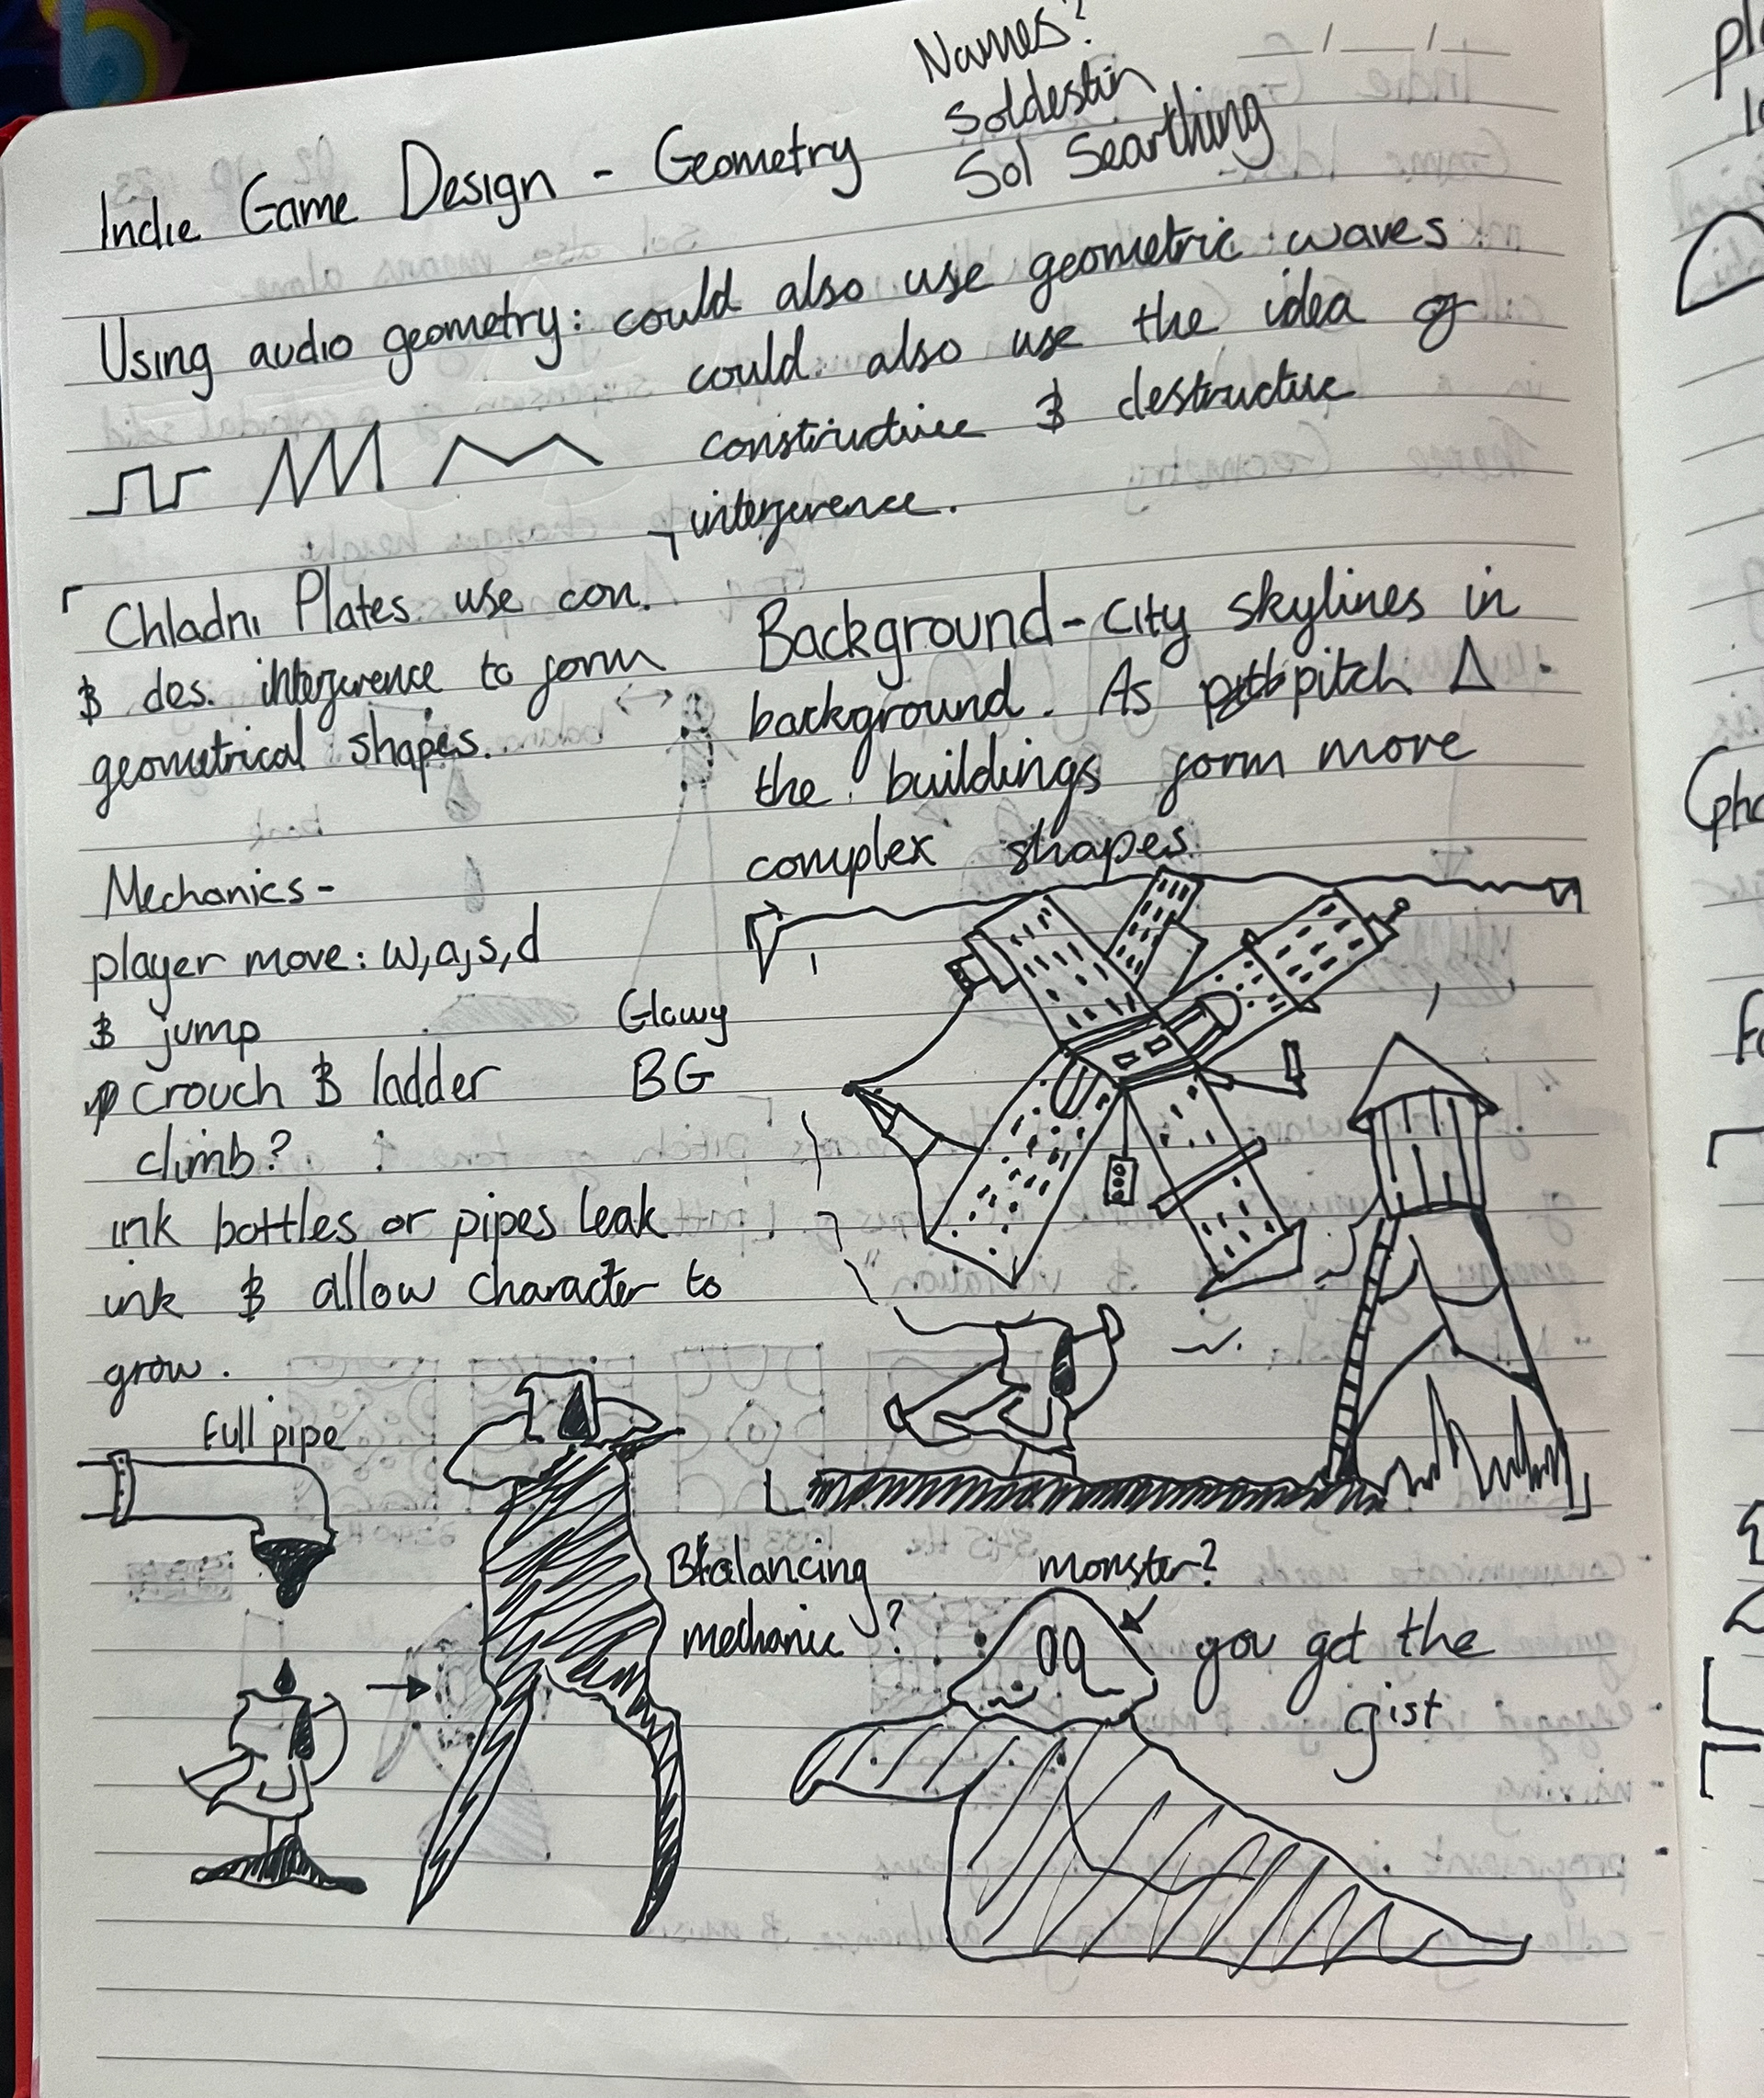 Names?
Soldestin
Sol Searthing
Indie Game Design - Geometry
Using audio geometry: could also use geometric waves
could also use the idea of
constructive & destructive
interference.
Chladni Plates use con.
& des. interference to form
geometrical shapes.
Background - City skylines in
background. As pitch Δ
the buildings form more
complex shapes.
Mechanics -
player move: w,a,s,d
& jump
crouch & ladder
climb?
Glowy
BG
ink bottles or pipes leak
ink & allow character to
grow.
Full pipe
Balancing
mechanic?
monster?
you get the
gist